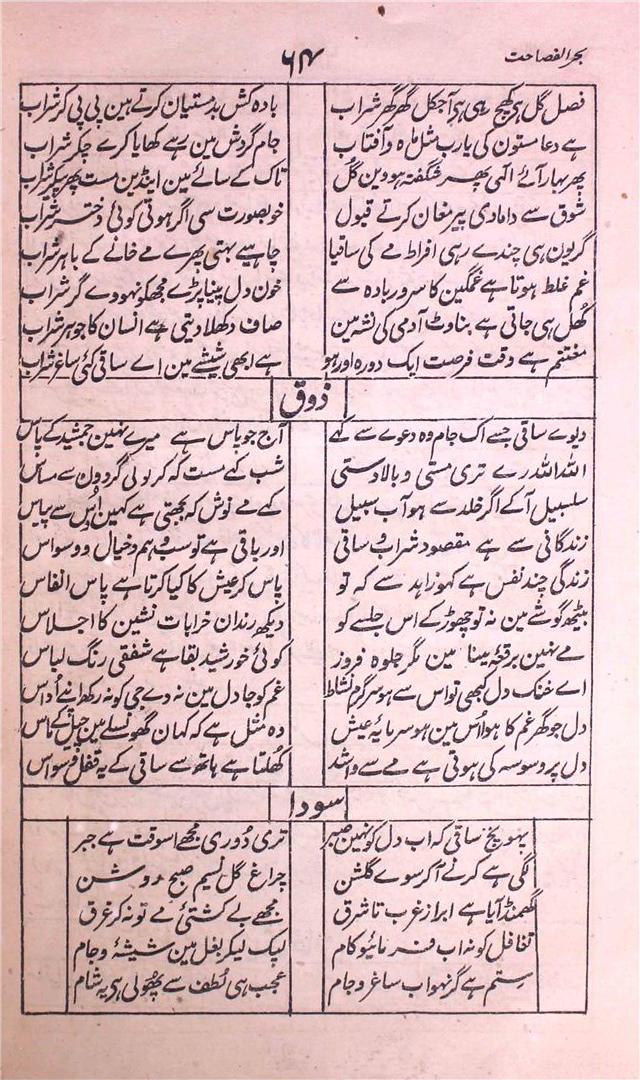 بحر الفصاحت
۶۱۴
فصل گل ہی کھچ رہی ہی آجکل گھر گھر شراب بادہ کش بدمستیان کرتے ہین پی پی کر شراب
ہے دعا مستون کی یارب مثل ماہ و آفتاب جام گردش مین رہے کھایا کرے چکر شراب
پھر بہار آئے الٰہی پھر شگفتہ ہووین گل تاک کے سائے مین اینڈین مست پھر پیکر شراب
شوق سے دامادی پیر مغان کرتے قبول خوبصورت سی اگر ہوتی کوئی دختر شراب
گریون ہی چندے رہی افراط مے کی ساقیا چاہیے بہتی پھرے مے خانے کے باہر شراب
غم غلط ہوتا ہے غمگین کا سرور بادہ سے خون دل پینا پڑے مجھکو نہووے گر شراب
کھل ہی جاتی ہے بناوٹ آدمی کی نشہ مین صاف دکھلا دیتی ہے انسان کا جوہر شراب
مغتنم ہے وقت فرصت ایک دورہ اور ہو ہے ابھی شیشے مین اے ساقی کئی ساغر شراب
ذوق
دیوے ساقی جسے اک جام وہ دعوے سے کہے آج جو پاس ہے میرے نہین جمشید کے پاس
اللہ اللہ رے تری مستی و بالا دستی شب کہے مست کہ کر لو لی گردون سے مساس
سلسبیل آکے اگر خلد سے ہو آب سبیل کہے مے نوش کہ بجھتی ہے کہین اُس سے پیاس
زندگانی سے ہے مقصود شراب و ساقی اور باقی ہے تو سب وہم و خیال و وسواس
زندگی چند نفس ہے کہو زاہد سے کہ تو پاس کر عیش کا کیا کرتا ہے پاس انفاس
بیٹھ گوشے مین نہ تو چھوڑ کے اس جلسے کو دیکھ رندان خرابات نشین کا اجلاس
مے نہین برقعۂ مینا مین مگر جلوہ فروز کوئی خورشید لقا ہے شفقی رنگ لباس
اے خنک دل کبھی تو اس سے ہو سرگرم نشاط غم کو جا دل مین نہ دے جی کو نہ رکھ اپنے اُداس
دل جو گھر غم کا ہوا اُس مین ہو سرمایۂ عیش وہ مثل ہے کہ کہان گھونسلے مین چیل کے ماس
دل پر وسوسہ کی ہوتی ہے مے سے واشد کھلتا ہے ہاتھ سے ساقی کے یہ قفل وسواس
سودا
پہونچ ساقی کہ اب دل کو نہین صبر تری دُوری مجھے اسوقت ہے جبر
لگی ہے کرنے آکر سوے گلشن چراغ گل نسیم صبح روشن
گھمنڈ آیا ہے ابر از غرب تا شرق مجھے بے کشتیٔ مے تو نہ کر غرق
تغافل کو نہ اب فرمائیو کام لپک لیکر بغل مین شیشۂ و جام
ستم ہے گر نہو اب ساغر و جام عجب ہی لطف سے پھولی ہی یہ شام